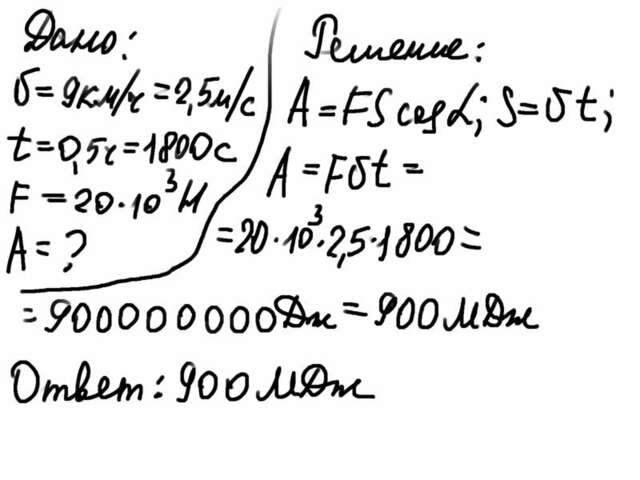 Дано:
υ=9км/ч=2,5м/с
t=0,5ч=1800с
F=20·10³Н
A=?
Решение:
A=FScosα; S=υt;
A=Fυt=
=20·10³·2,5·1800=
=900000000Дж=900МДж
Ответ: 900МДж